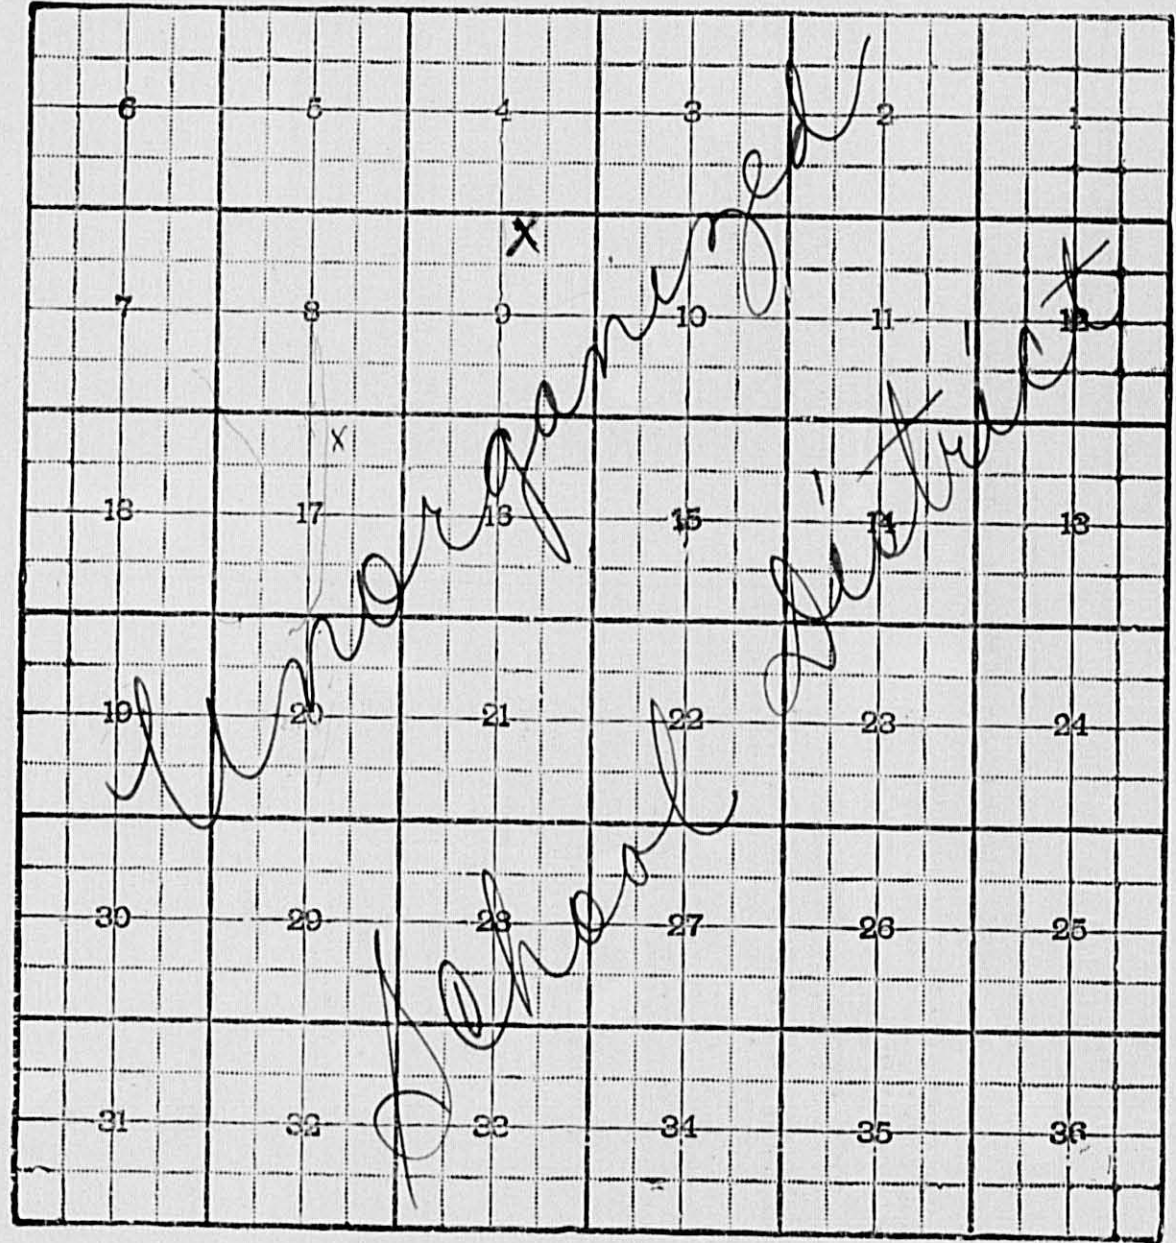 6 5 4 3 2 1
x
7 8 9 10 11 12
x
18 17 16 15 14 13
19 20 21 22 23 24
30 29 28 27 26 25
31 32 33 34 35 36
Unorganized
School District